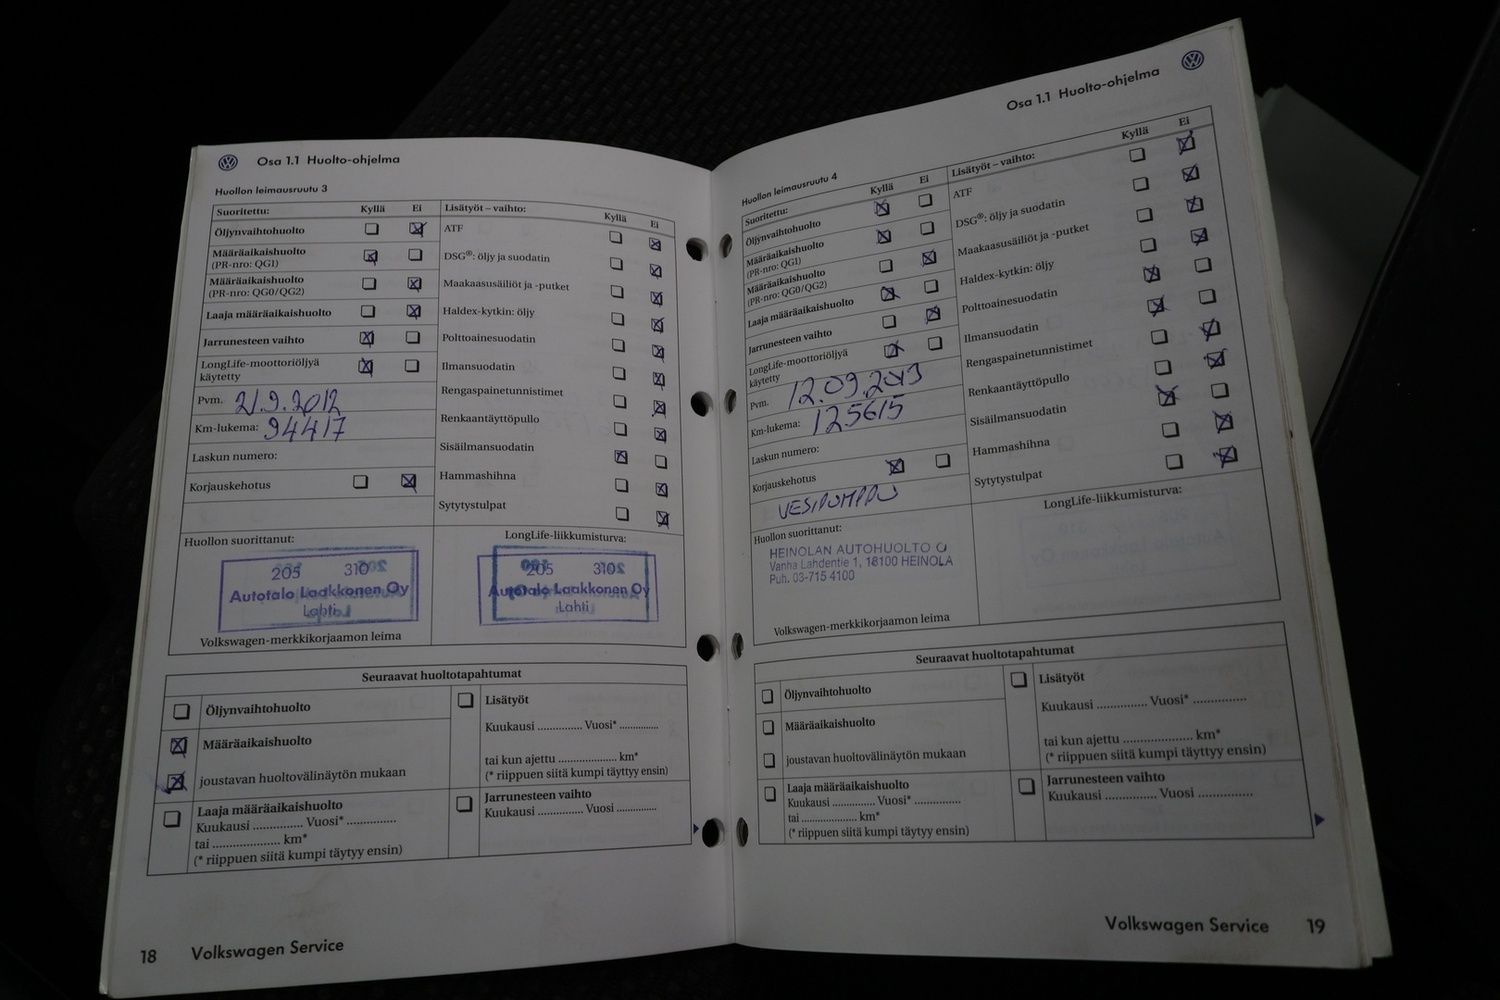 Osa 1.1 Huolto-ohjelma
Huollon leimausruutu 3
Suoritettu: Kyllä Ei
Öljynvaihtohuolto
Määräaikaishuolto
(PR-nro: QG1)
Määräaikaishuolto
(PR-nro: QG0/QG2)
Laaja määräaikaishuolto
Jarrunesteen vaihto
LongLife-moottoriöljyä
käytetty
Pvm. 21.9.2012
Km-lukema: 94417
Laskun numero:
Korjauskehotus
Lisätyöt – vaihto: Kyllä Ei
ATF
DSG®: öljy ja suodatin
Maakaasusäiliöt ja -putket
Haldex-kytkin: öljy
Polttoainesuodatin
Ilmansuodatin
Rengaspainetunnistimet
Renkaantäyttöpullo
Sisäilmansuodatin
Hammashihna
Sytytystulpat
Huollon suorittanut:
205 310
Autotalo Laakkonen Oy
Lahti
Volkswagen-merkkikorjaamon leima
LongLife-liikkumisturva:
205 310
Autotalo Laakkonen Oy
Lahti
Seuraavat huoltotapahtumat
Öljynvaihtohuolto
Määräaikaishuolto
joustavan huoltovälinäytön mukaan
Laaja määräaikaishuolto
Kuukausi ............... Vuosi* ...............
tai .................... km*
(* riippuen siitä kumpi täytyy ensin)
Lisätyöt
Kuukausi ............. Vuosi* .............
tai kun ajettu ................... km*
(* riippuen siitä kumpi täyttyy ensin)
Jarrunesteen vaihto
Kuukausi ............. Vuosi .............
18 Volkswagen Service
Osa 1.1 Huolto-ohjelma
Huollon leimausruutu 4
Suoritettu: Kyllä Ei
Öljynvaihtohuolto
Määräaikaishuolto
(PR-nro: QG1)
Määräaikaishuolto
(PR-nro: QG0/QG2)
Laaja määräaikaishuolto
Jarrunesteen vaihto
LongLife-moottoriöljyä
käytetty
Pvm. 12.09.2013
Km-lukema: 125615
Laskun numero:
Korjauskehotus
VESIPUMPPU
Lisätyöt – vaihto: Kyllä Ei
ATF
DSG®: öljy ja suodatin
Maakaasusäiliöt ja -putket
Haldex-kytkin: öljy
Polttoainesuodatin
Ilmansuodatin
Rengaspainetunnistimet
Renkaantäyttöpullo
Sisäilmansuodatin
Hammashihna
Sytytystulpat
Huollon suorittanut:
HEINOLAN AUTOHUOLTO O
Vanha Lahdentie 1, 18100 HEINOLA
Puh. 03-715 4100
Volkswagen-merkkikorjaamon leima
LongLife-liikkumisturva:
Seuraavat huoltotapahtumat
Öljynvaihtohuolto
Määräaikaishuolto
joustavan huoltovälinäytön mukaan
Laaja määräaikaishuolto
Kuukausi ............. Vuosi* ..............
tai .................... km*
(* riippuen siitä kumpi täytyy ensin)
Lisätyöt
Kuukausi ............... Vuosi* ...............
tai kun ajettu .................... km*
(* riippuen siitä kumpi täyttyy ensin)
Jarrunesteen vaihto
Kuukausi ............... Vuosi ...............
Volkswagen Service 19